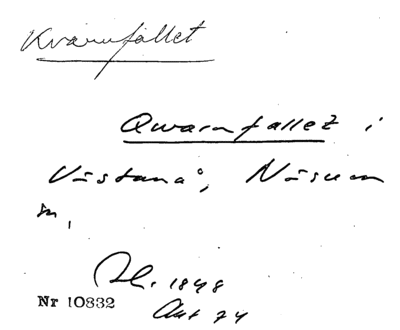 Kvarnfallet
Qwarnfallet i
Västanå, Näsum
sn,
Ak. 1848
Akt 74
Nr 10832